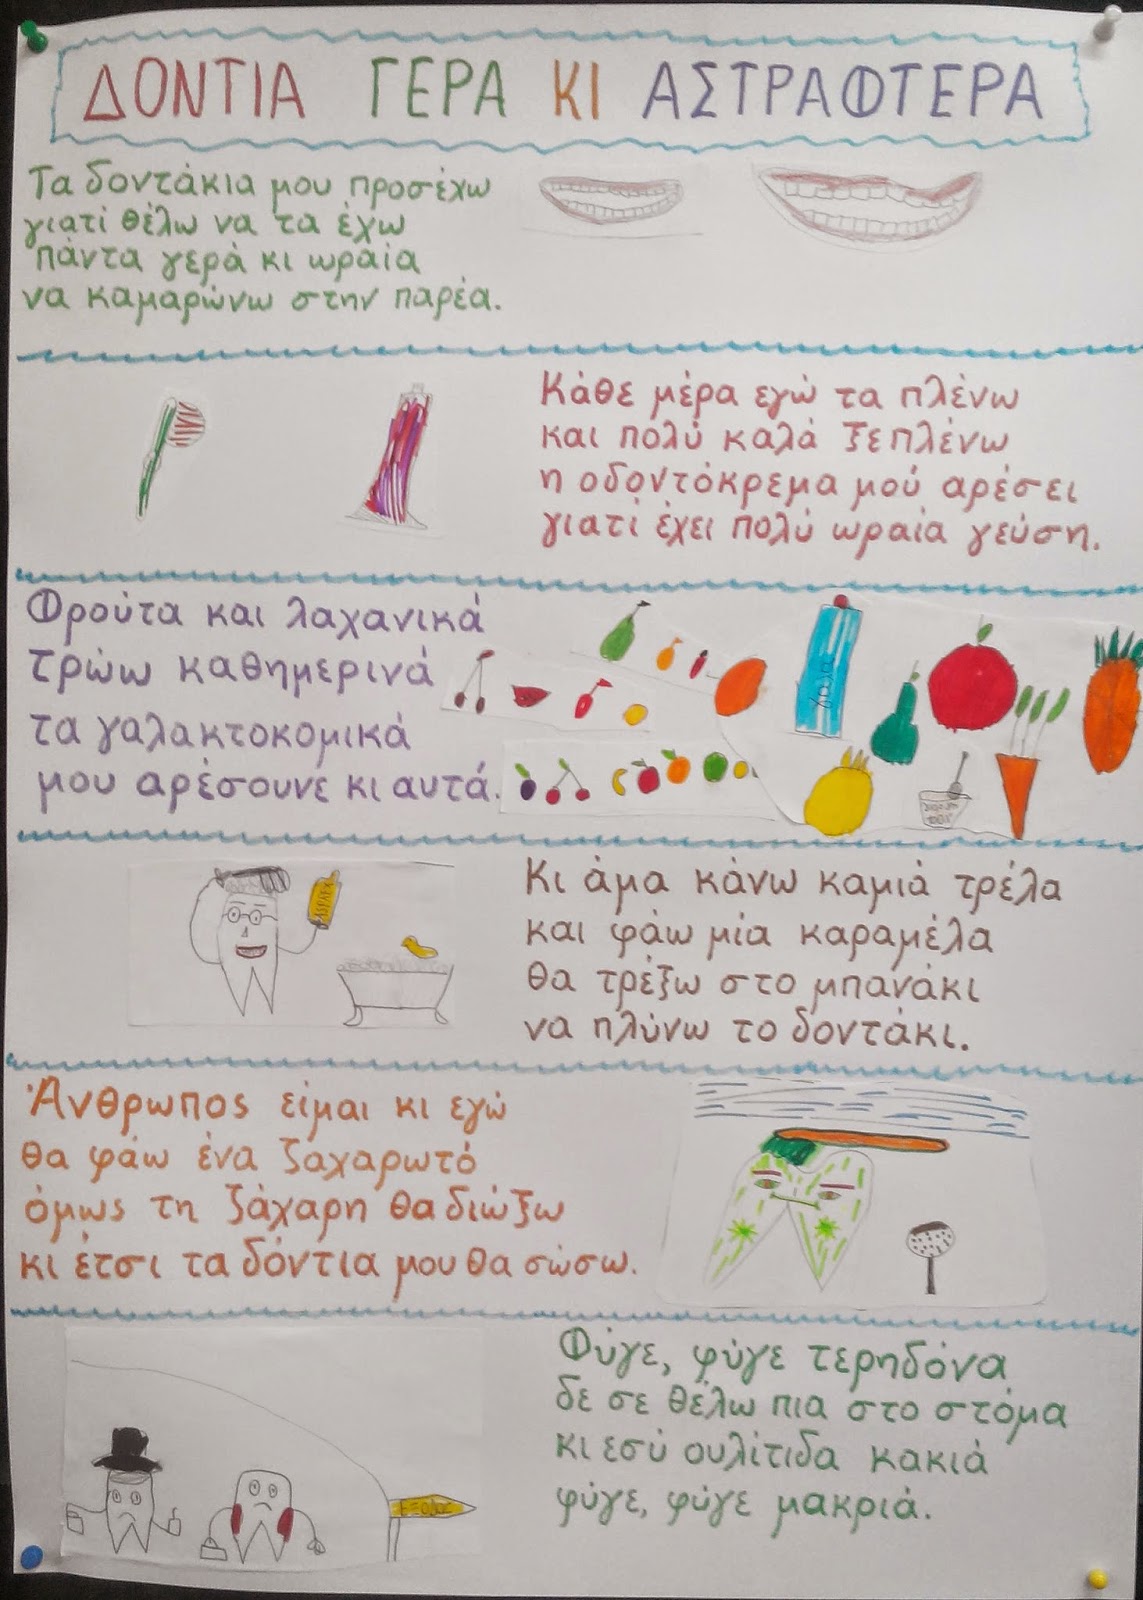 ΔΟΝΤΙΑ ΓΕΡΑ ΚΙ ΑΣΤΡΑΦΤΕΡΑ
Τα δοντάκια μου προσέχω
γιατί θέλω να τα έχω
πάντα γερά κι ωραία
να καμαρώνω στην παρέα.
Κάθε μέρα εγώ τα πλένω
και πολύ καλά ξεπλένω
η οδοντόκρεμα μού αρέσει
γιατί έχει πολύ ωραία γεύση.
Φρούτα και λαχανικά
τρώω καθημερινά
τα γαλακτοκομικά
μου αρέσουνε κι αυτά.
γάλα
Κι άμα κάνω καμιά τρέλα
και φάω μία καραμέλα
θα τρέξω στο μπανάκι
να πλύνω το δοντάκι.
Άνθρωπος είμαι κι εγώ
θα φάω ένα ζαχαρωτό
όμως τη ζάχαρη θα διώξω
κι έτσι τα δόντια μου θα σώσω.
Φύγε, φύγε τερηδόνα
δε σε θέλω πια στο στόμα
κι εσύ ουλίτιδα κακιά
φύγε, φύγε μακριά.
έξοδος